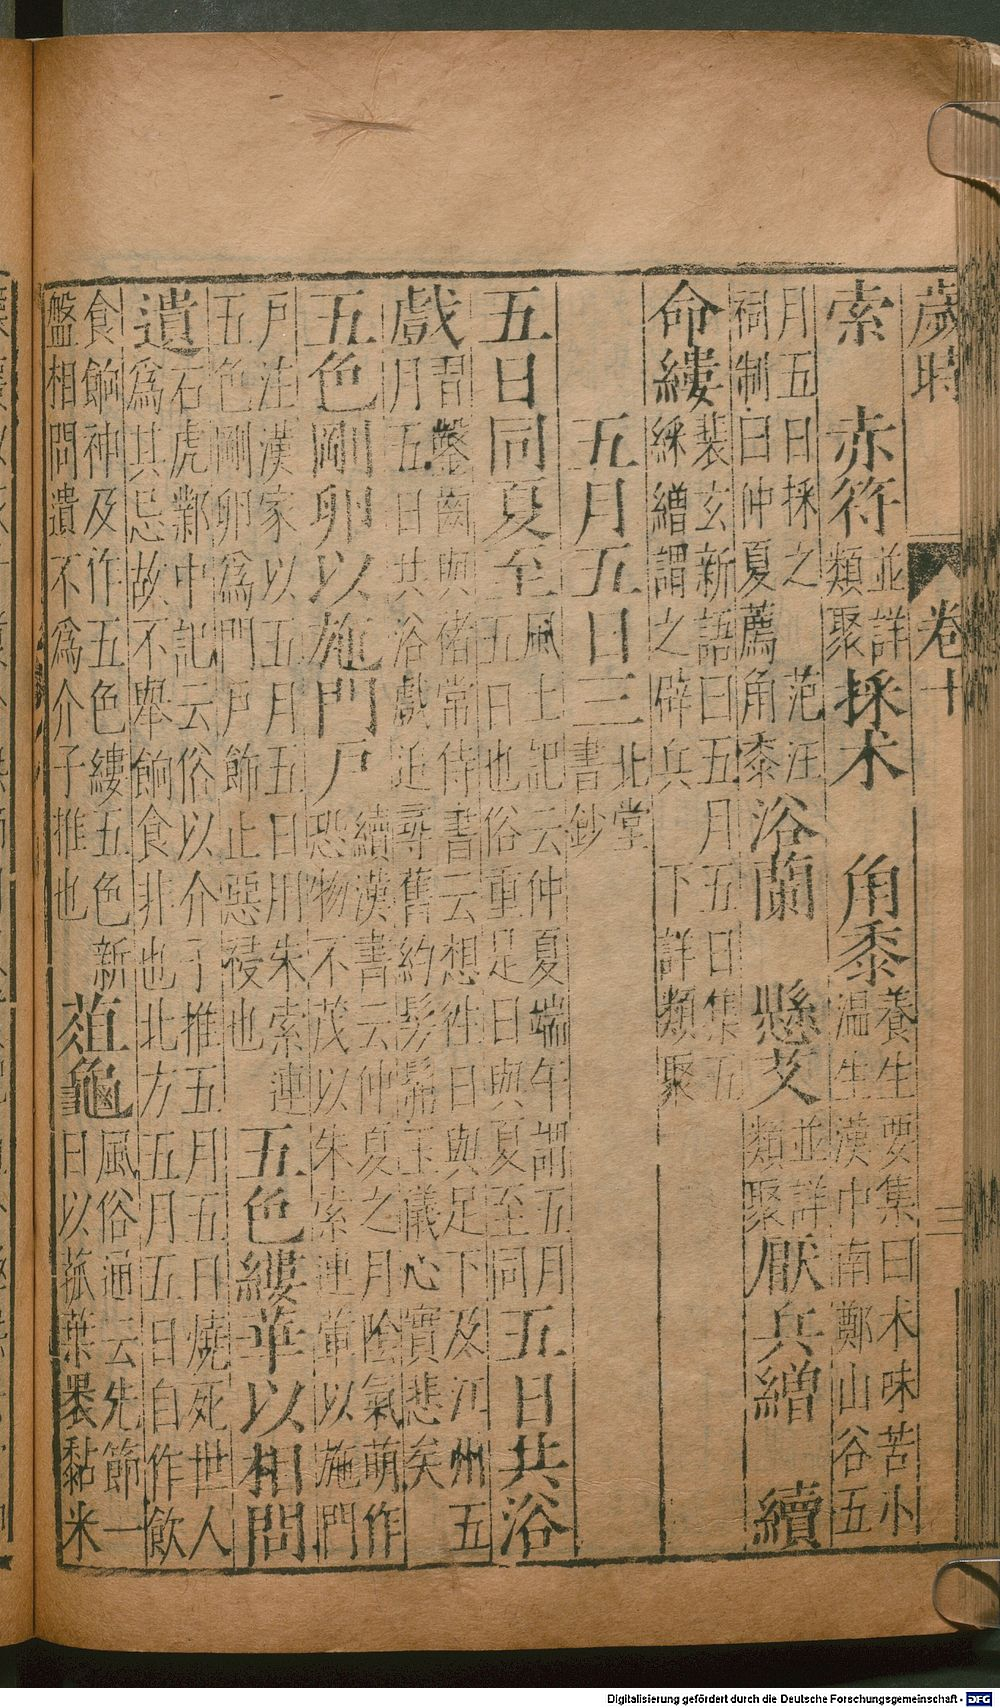 歲時 卷十 三
索 赤符
並詳
類聚
採术 角黍
養生要集曰术味苦小
温生漢中南鄭山谷五
月五日採之 范汪
祠制曰仲夏薦角黍
浴蘭 懸艾
並詳
類聚
厭兵繒 續
命縷
裴玄新語曰五月五日集五
綵繒謂之辟兵 下詳類聚
五月五日三
北堂
書鈔
五日同夏至
風土記云仲夏端午謂五月
五日也俗重足日與夏至同
五日共浴
戲
習鑿齒與褚常侍書云想徃日與足下及江州五
月五日共浴戲追尋舊約髣髴玉儀心實悲矣
五色剛卵以施門戶
續漢書云仲夏之月陰氣萌作
恐物不茂以朱索連葷以施門
戶注漢家以五月五日用朱索連
五色剛卵爲門戶飾止惡祲也
五色縷華以相問
遺
石虎鄴中記云俗以介子推五月五日燒死世人
爲其忌故不舉餉食非也北方五月五日自作飲
食餉神及作五色縷五色新
盤相問遺不爲介子推也
菹龜
風俗通云先節一
日以菰葉裹黏米
Digitalisierung gefördert durch die Deutsche Forschungsgemeinschaft - DFG